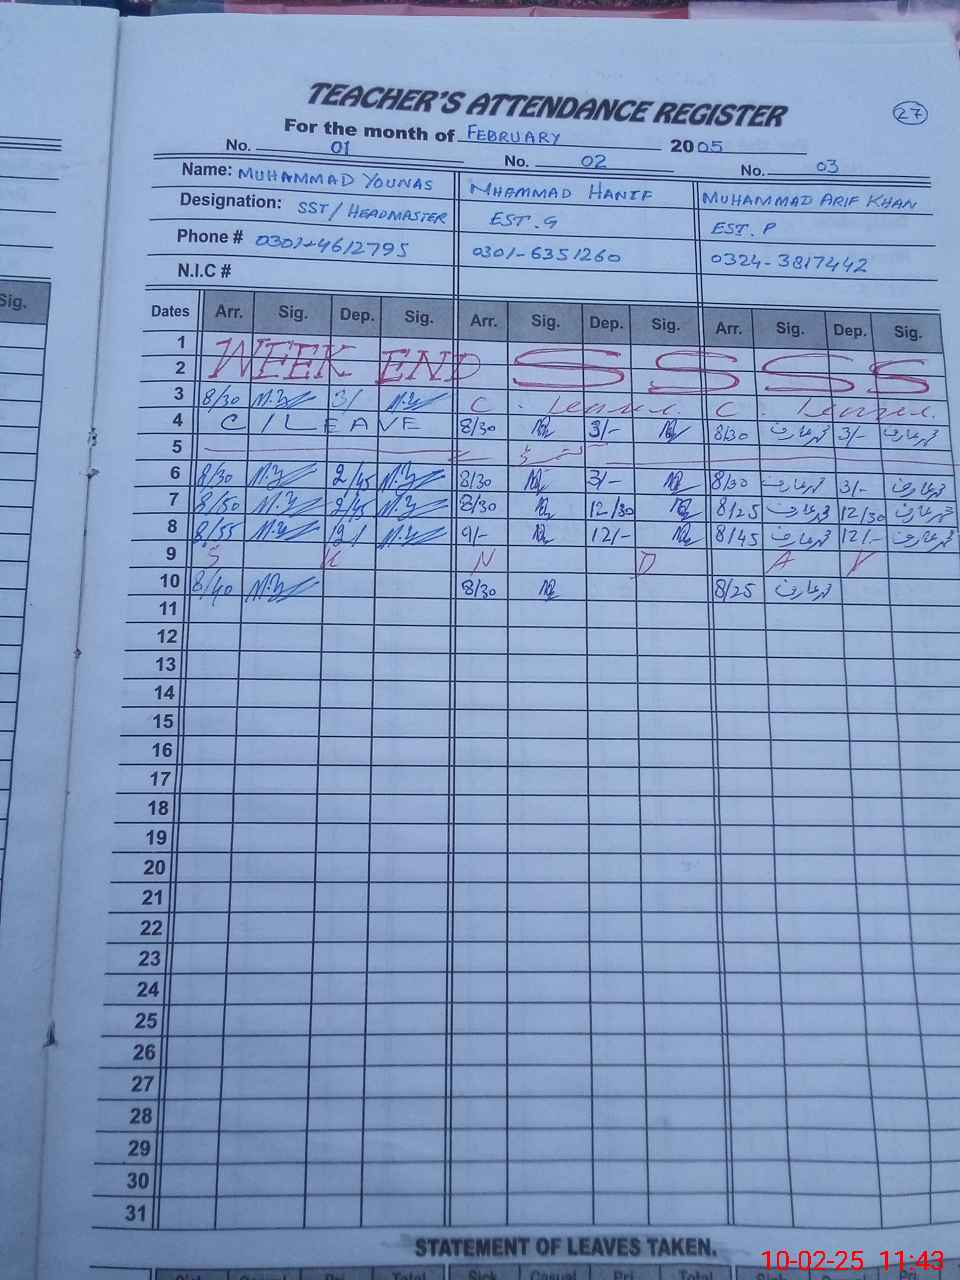 TEACHER'S ATTENDANCE REGISTER
27
For the month of FEBRUARY 2005
No. 01 No. 02 No. 03
Name: MUHAMMAD YOUNAS MHAMMAD HANIF MUHAMMAD ARIF KHAN
Designation: SST/HEADMASTER EST. G EST. P
Phone # 0301-4612795 0301-6351260 0324-3817442
N.I.C #
Sig.
Dates Arr. Sig. Dep. Sig. Arr. Sig. Dep. Sig. Arr. Sig. Dep. Sig.
1
WEEK END S S S S
2
3 8/30 M.Y 3/ M.Y C. Leave. C. Leave.
4 C/LEAVE 8/30 3/- 8/30 محمد عارف 3/- محمد عارف
5
6 8/30 M.Y 2/45 M.Y 8/30 3/- 8/30 محمد عارف 3/- محمد عارف
7 8/50 M.Y 2/45 M.Y 8/30 12/30 8/25 محمد عارف 12/30 محمد عارف
8 8/55 M.Y 12/ M.Y 9/- 12/- 8/45 محمد عارف 12/- محمد عارف
9 S N D A Y
10 8/40 M.Y 8/30 8/25 محمد عارف
11
12
13
14
15
16
17
18
19
20
21
22
23
24
25
26
27
28
29
30
31
STATEMENT OF LEAVES TAKEN.
10-02-25 11:43
Casual Pri. Total Sick Casual Pri. Total